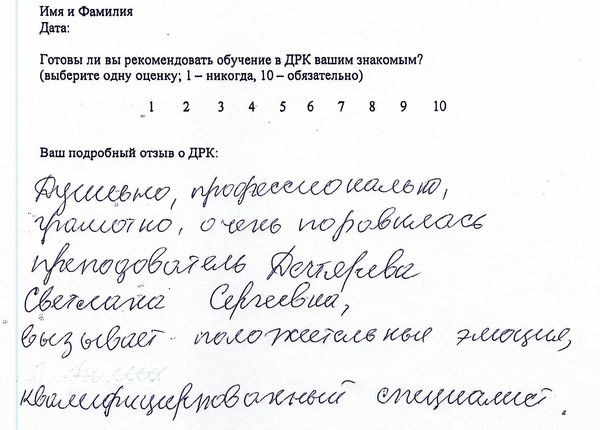 Имя и Фамилия
Дата:
Готовы ли вы рекомендовать обучение в ДРК вашим знакомым?
(выберите одну оценку; 1 – никогда, 10 – обязательно)
1 2 3 4 5 6 7 8 9 10
Ваш подробный отзыв о ДРК:
Душевно, профессионально,
грамотно, очень поравилась
преподователь Дегтярева
Светлана Сергеевна,
вызывает положительные эмоции,
квалифицированный специалист.